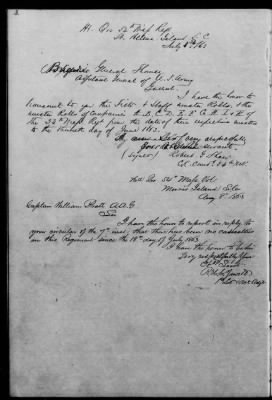 Hd. Qrs 54th Mass Regt
St. Helena Island, S.C.
July 6th/63
Brigadier General Thomas
Adjutant General of U.S. Army
I have the honor to
transmit to you the Field & Staff muster Rolls, & the
muster Rolls of Companies A, B, C, D, E, F, G, H, I & K of
the 54th Mass Regt from the date of their
to the thirtieth day of June 1863.
I am very respectfully
Your servant
(signed) Robert G Shaw
Col. Comd'g 54th Mass.
Hd. Qrs. 54th Mass Vol
Morris Island S.C.
Aug 8th 1863
Captain William A.A.G.
I have the honor to report in reply to
your circular of the 7th inst, that there have been no casualties
in this regiment since the 18th day of July 1863
I have the honor to be
Very respectfully Your